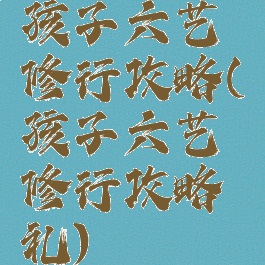 孩子六艺
修行攻略(
孩子六艺
修行攻略
礼)